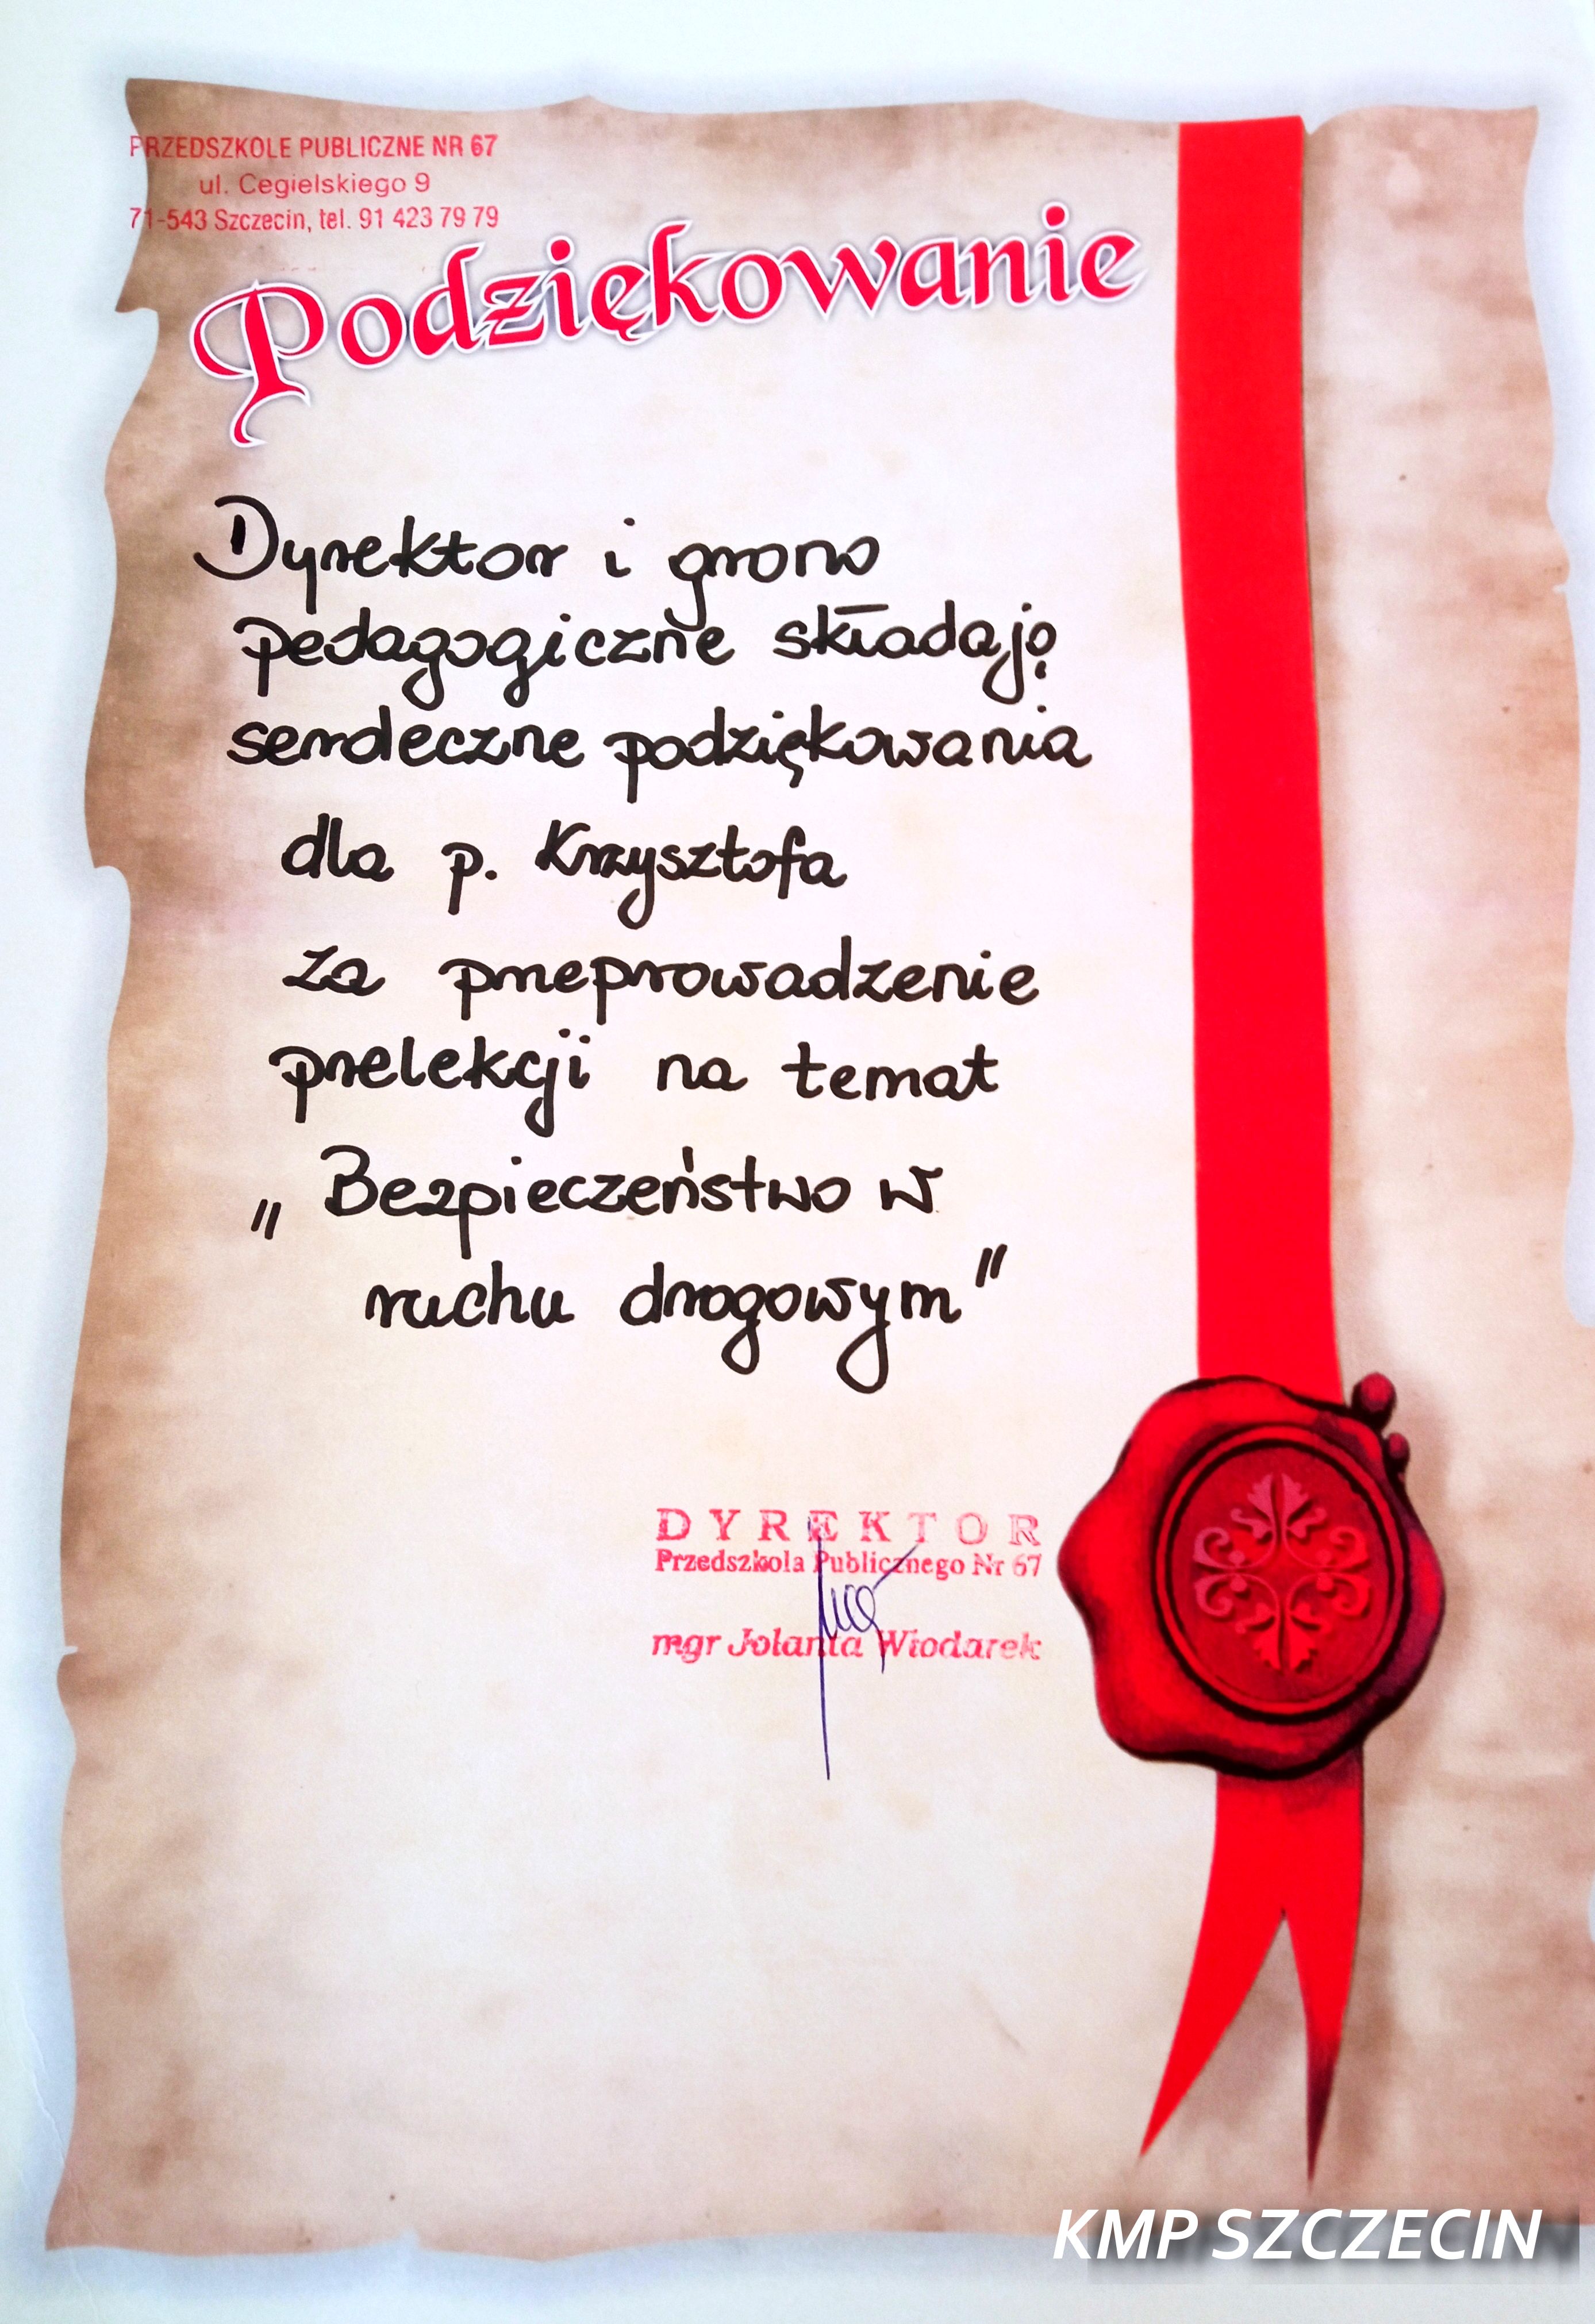 PRZEDSZKOLE PUBLICZNE NR 67
ul. Cegielskiego 9
71-543 Szczecin, tel. 91 423 79 79
Podziękowanie
Dyrektor i grono
pedagogiczne składają
serdeczne podziękowania
dla p. Krzysztofa
za przeprowadzenie
prelekcji na temat
„Bezpieczeństwo w
ruchu drogowym"
DYREKTOR
Przedszkola Publicznego Nr 67
mgr Jolanta Włodarek
KMP SZCZECIN